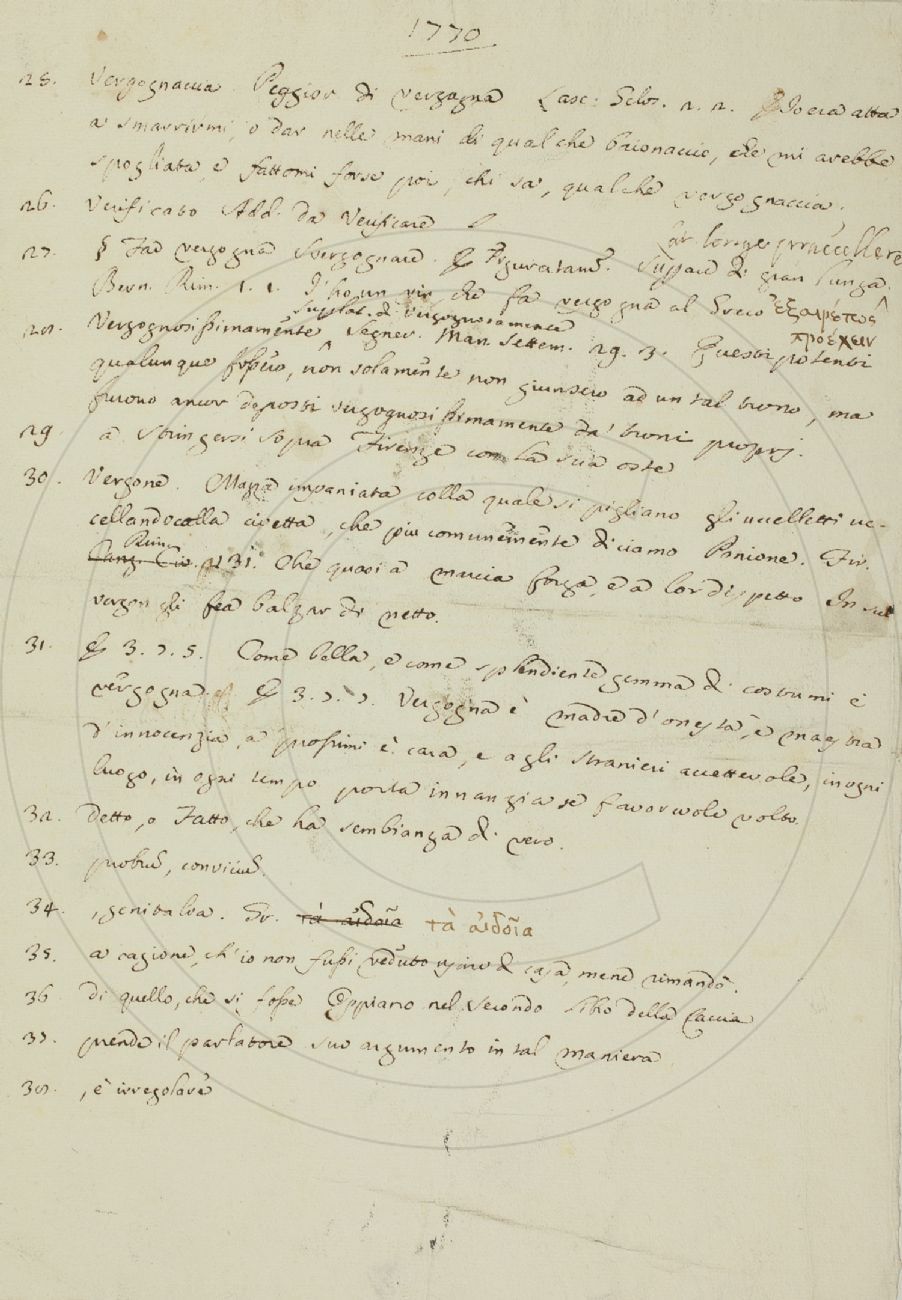 1770
25. Vergognaccia. Peggior. di vergogna Lasc: Gelos. 2. 2. § Io era atta
a smarrirmi, o dar nelle mani di qualche baionaccio, che mi avebbe
spogliata, e fattomi forse poi, chi sa, qualche vergognaccia.
26. Verificato Add. da Verificare
Lat. longe praecellere
27. § Far vergogna Svergognare. § Figuratam. Superare di gran lunga.
Bern. Rim. 1. 1. I' ho un vin che fa vergogna al Greco ἐξαιρέτως
προέχειν
Superlat. di Vergognosamente
28. Vergognosissimamente Segner. Mann. Settem. 29. 3. Questi potenti
qualunque fossero, non solamente non giunsero ad un tal trono, ma
furono ancor deposti vergognosissimamente da' troni proprj.
29. a stringersi sopra Firenze con la sua oste
30. Vergone. Mazza impaniata colla quale si pigliano gli uccelletti uc-
cellando colla civetta, che più comunemente diciamo Panione. Fir.
Rim.
31. Che quasi a marcia forza, e a lor dispetto In sul
vergon gli fea balzar di netto.
31. § 3. 7. 5. Come bella, e come splendiente gemma di costumi è
vergogna. § 3. 7. 7. Vergogna è madre d'onestà, e maestra
d'innocenzia, a prossimi è cara, e agli stranieri accettevole, in ogni
luogo, in ogni tempo porta innanzi a se favorevole volto.
32. Detto, o Fatto, che ha sembianza di vero.
33. probrum, convicium.
34. , genitalia. Gr. τὰ αἰδοῖα τὰ αἰδοῖα
35. a cagione, ch'io non fussi veduto uscire di casa, mene rimandò.
36 di quello, che si fosse Oppiano nel secondo libro della Caccia
37. prende il parlatore suo argumento in tal maniera
38. , è irregolare